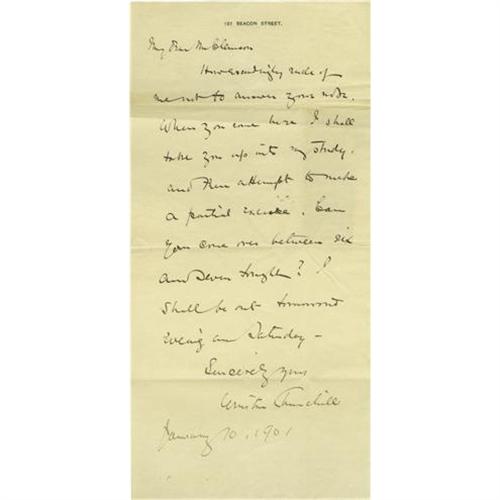 181 BEACON STREET.
My Dear Mr
How exceedingly rude of
me not to answer your note.
When you come here I shall
take you up into my study.
and then attempt to make
a partial excuse. Can
you come over between six
and seven tonight? I
shall be out tomorrow
evening and Saturday —
Sincerely yours
Winston Churchill
January 10, 1901